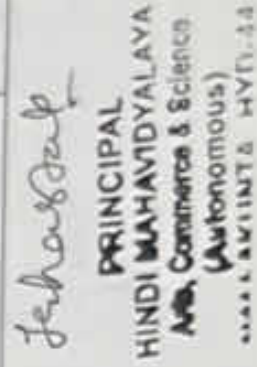 PRINCIPAL
HINDI MAHAVIDYALAYA
Arts, Commerce & Science
(Autonomous)
HYD.44